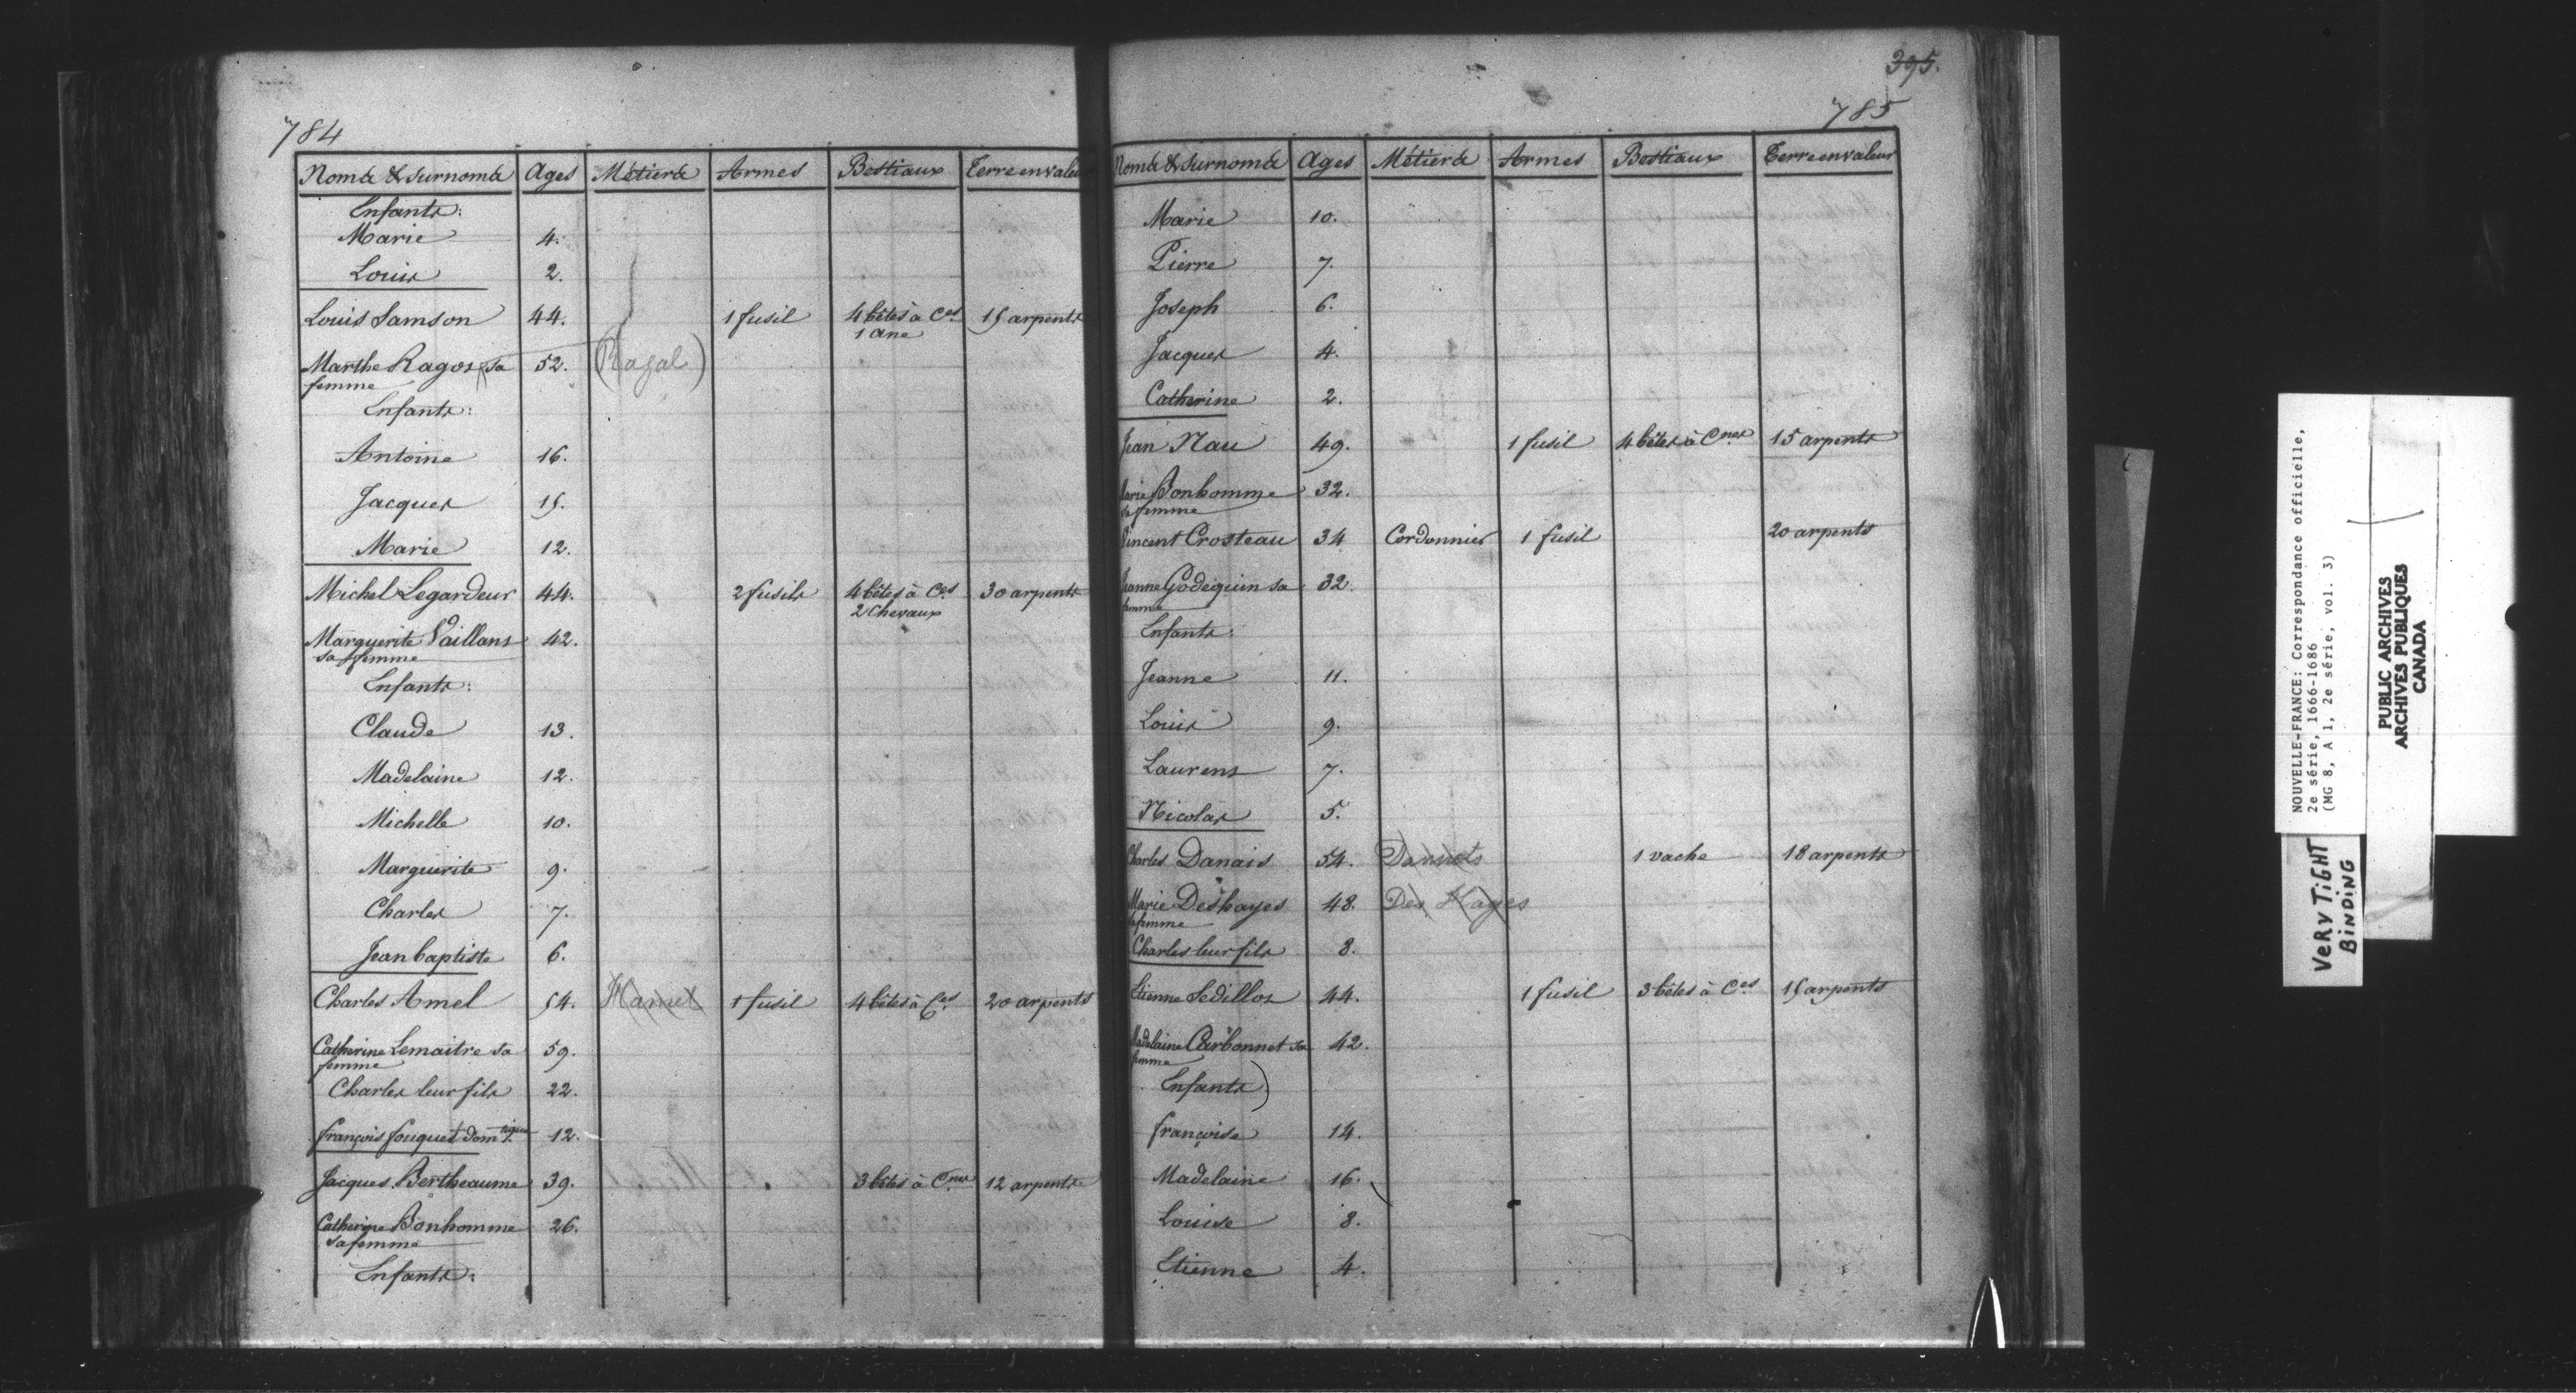 784
Noms & surnoms Ages Métiers Armes Bestiaux Terre en valeur
Enfants:
Marie 4.
Louis 2.
Louis Samson 44. 1 fusil 4 bêtes à Ces 15 arpents
1 ane
Marthe Ragos sa 52. (Ragal)
femme
Enfants:
Antoine 16.
Jacques 15.
Marie 12.
Michel Legardeur 44. 2 fusils 4 bêtes à Ces 30 arpents
2 Chevaux
Marguerite Vaillans 42.
sa femme
Enfants:
Claude 13.
Madelaine 12.
Michelle 10.
Marguerite 9.
Charles 7.
Jean baptiste 6.
Charles Amel 54. Hamel 1 fusil 4 bêtes à Ces 20 arpents
Catherine Lemaitre sa 59.
femme
Charles leur fils 22.
françois fouquet domtique 12.
Jacques Bertheaume 39. 3 bêtes à Cnes 12 arpents
Catherine Bonhomme 26.
sa femme
Enfants:
395.
785
Noms & surnoms Ages Métiers Armes Bestiaux Terre en valeur
Marie 10.
Pierre 7.
Joseph 6.
Jacques 4.
Catherine 2.
Jean Nau 49. 1 fusil 4 bêtes à Cnes 15 arpents
Marie Bonhomme 32.
sa femme
Vincent Crosteau 34 Cordonnier 1 fusil 20 arpents
Jeanne Godequin sa 32.
femme
Enfants:
Jeanne 11.
Louis 9.
Laurens 7.
Nicolas 5.
Charles Danais 54. 1 vache 18 arpents
Marie Deshayes 48. Des Hayes
sa femme
Charles leur fils 8.
Etienne Sedillos 44. 1 fusil 3 bêtes à Ces 15 arpents
Madelaine Carbonnet sa 42.
femme
Enfants)
françoise 14.
Madelaine 16.
Louise 8.
Etienne 4.
NOUVELLE-FRANCE: Correspondance officielle,
2e série, 1666-1686
(MG 8, A 1, 2e série, vol. 3)
PUBLIC ARCHIVES
ARCHIVES PUBLIQUES
CANADA
VERY TIGHT
BINDING